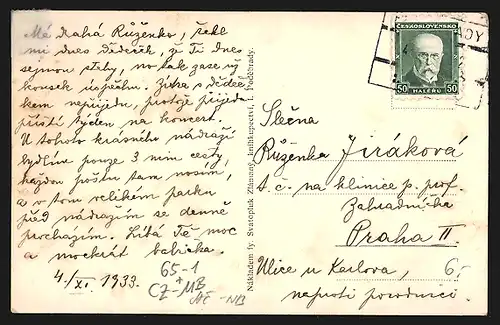 Má drahá Růženko, řekl
mi dnes Dědeček, že Ti dnes
sejmou stehy, no tak zase už
kousek úspěchu. Zítra s děde
kem nepřijedu, protože přijedu
příští týden na koncert.
U tohoto krásného nádraží
bydlím pouze 3 min cesty,
každou poštu tam nosím,
a v tom velikém parku
před nádražím se denně
procházím. Líbá Tě moc
a mockrát babička.
4./XI. 1933.
65-1
CZ-MB
Nákladem fy. Svatopluk Zámour, knihkupectví, Poděbrady.
ČESKOSLOVENSKO
50 50
HALÉŘŮ
Slečna
Růženka Jiráková
t. č. na klinice p. prof.
Zahradnický
Praha II
Ulice u Karlova, 6,
naproti porodnici.